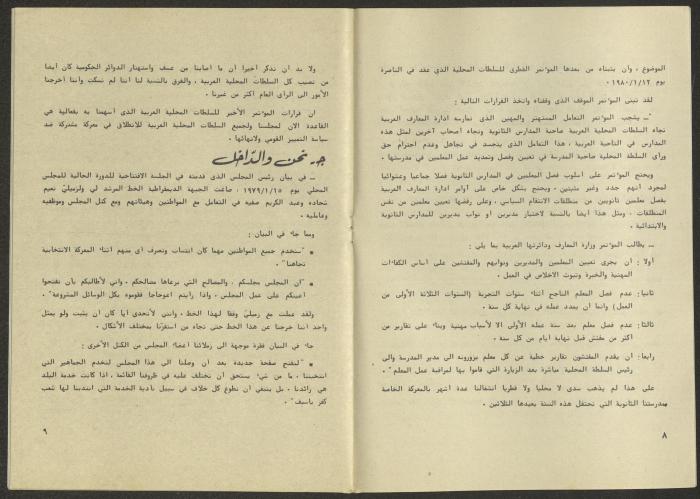 الموضوع ، وأن يتبناه من بعدها المؤتمر القطرى للسلطات المحلية الذى عقد في الناصرة
يوم ١٩٨٠/١/١٢ .
لقد تبنى المؤتمر الموقف الذى وقفناه واتخذ القرارات التالية :
"ــ يشجب المؤتمر التعامل المستهتر والمهين الذى تمارسه ادارة المعارف العربية
تجاه السلطات المحلية العربية صاحبة المدارس الثانوية وتجاه أصحاب آخرين لمثل هذه
المدارس في الناحية العربية ، هذا التعامل الذى يتجسد في تجاهل وعدم احترام حق
ورأى السلطة المحلية صاحبة المدرسة في تعيين وفصل وتمديد عمل المعلمين في مدرستها .
ويحتج المؤتمر على أسلوب فصل المعلمين في المدارس الثانوية فصلا جماعيا وعشوائيا
لمجرد أنهم جدد وغير مثبتين . ويحتج بشكل خاص على أوامر ادارة المعارف العربية
بفصل معلمين ثانويين من منطلقات الانتقام السياسي ، وعلى رفضها تعيين معلمين من نفس
المنطلقات ، ومثل هذا أيضا بالنسبة لاختيار مديرين او نواب مديرين للمدارس الثانوية
والابتدائية .
ــ يطالب المؤتمر وزارة المعارف ودائرتها العربية بما يلي :
أولا : أن يجرى تعيين المعلمين والمديرين ونوابهم والمفتشين على أساس الكفاءات
المهنية والخبرة وثبوت الاخلاص في العمل .
ثانيا : عدم فصل المعلم الناجح أثناء سنوات التجربة (السنوات الثلاثة الأولى من
العمل) وانما أن يمدد عمله في نهاية كل سنة .
ثالثا : عدم فصل معلم بعد سنة عمله الأولى الا لأسباب مهنية وبناء على تقارير من
اكثر من مفتش قبل نهاية أيام من كل سنة .
رابعا : أن يقدم المفتشون تقارير خطية عن كل معلم يزورونه الى مدير المدرسة والى
رئيس السلطة المحلية مباشرة بعد الزيارة التي قاموا بها لمراقبة عمل المعلم" .
على هذا لم يذهب سدى لا محليا ولا قطريا انشغالنا عدة أشهر بالمعركة الخاصة
بمدرستنا الثانوية التي تحتفل هذه السنة بعيدها الثلاثين .
٨
ولا بد أن نذكر أخيرا أن ما أصابنا من عسف واستهتار الدوائر الحكومية كان أيضا
من نصيب كل السلطات المحلية العربية ، والفرق بالنسبة لنا اننا لم نسكت واننا أخرجنا
الأمور الى الرأى العام اكثر من غيرنا .
ان قرارات المؤتمر الأخير للسلطات المحلية العربية الذى أسهمنا به بفعالية هي
القاعدة الان لمجلسنا ولجميع السلطات المحلية العربية للانطلاق في معركة مشتركة ضد
سياسة التمييز القومي ولانهائها .
جـ - نحن والدّاخل
ــ في بيان رئيس المجلس الذى قدمته في الجلسة الافتتاحية للدورة الحالية للمجلس
المحلي يوم ١٩٧٩/١/١٥ ، صاغت الجبهة الديمقراطية الخط المرشد لي ولزميلي نعيم
شحاده وعبد الكريم صفيه في التعامل مع المواطنين وهيئاتهم ومع كتل المجلس وموظفيه
وعامليه .
ومما جاء في البيان :
• "سنخدم جميع المواطنين مهما كان انتساب وتصرف أى منهم أثناء المعركة الانتخابية
تجاهنا" .
• "ان المجلس مجلسكم ، والمصالح التي يرعاها مصالحكم . واني لأطالبكم بأن تفتحوا
أعينكم على عمل المجلس ، واذا رأيتم اعوجاجا فقوموه بكل الوسائل المشروعة" .
ولقد عملت مع زميليّ وفقا لهذا الخط . وانني لأتحدى أيا كان أن يثبت ولو بمثل
واحد اننا خرجنا عن هذا الخط حتى تجاه من استفزّنا بمختلف الأشكال .
جاء في البيان فقرة موجهة الى زملائنا أعضاء المجلس من الكتل الأخرى :
• "لنفتح صفحة جديدة بعد أن وصلنا الى هذا المجلس لنخدم الجماهير التي
انتخبتنا ، ما من شيء يستحق أن نختلف عليه في ظروفنا القائمة ، اذا كانت خدمة البلد
هي رائدنا . بل ينبغي أن نطوع كل خلاف في سبيل تأدية الخدمة التي انتدبنا لها شعب
كفر ياسيف" .
٩